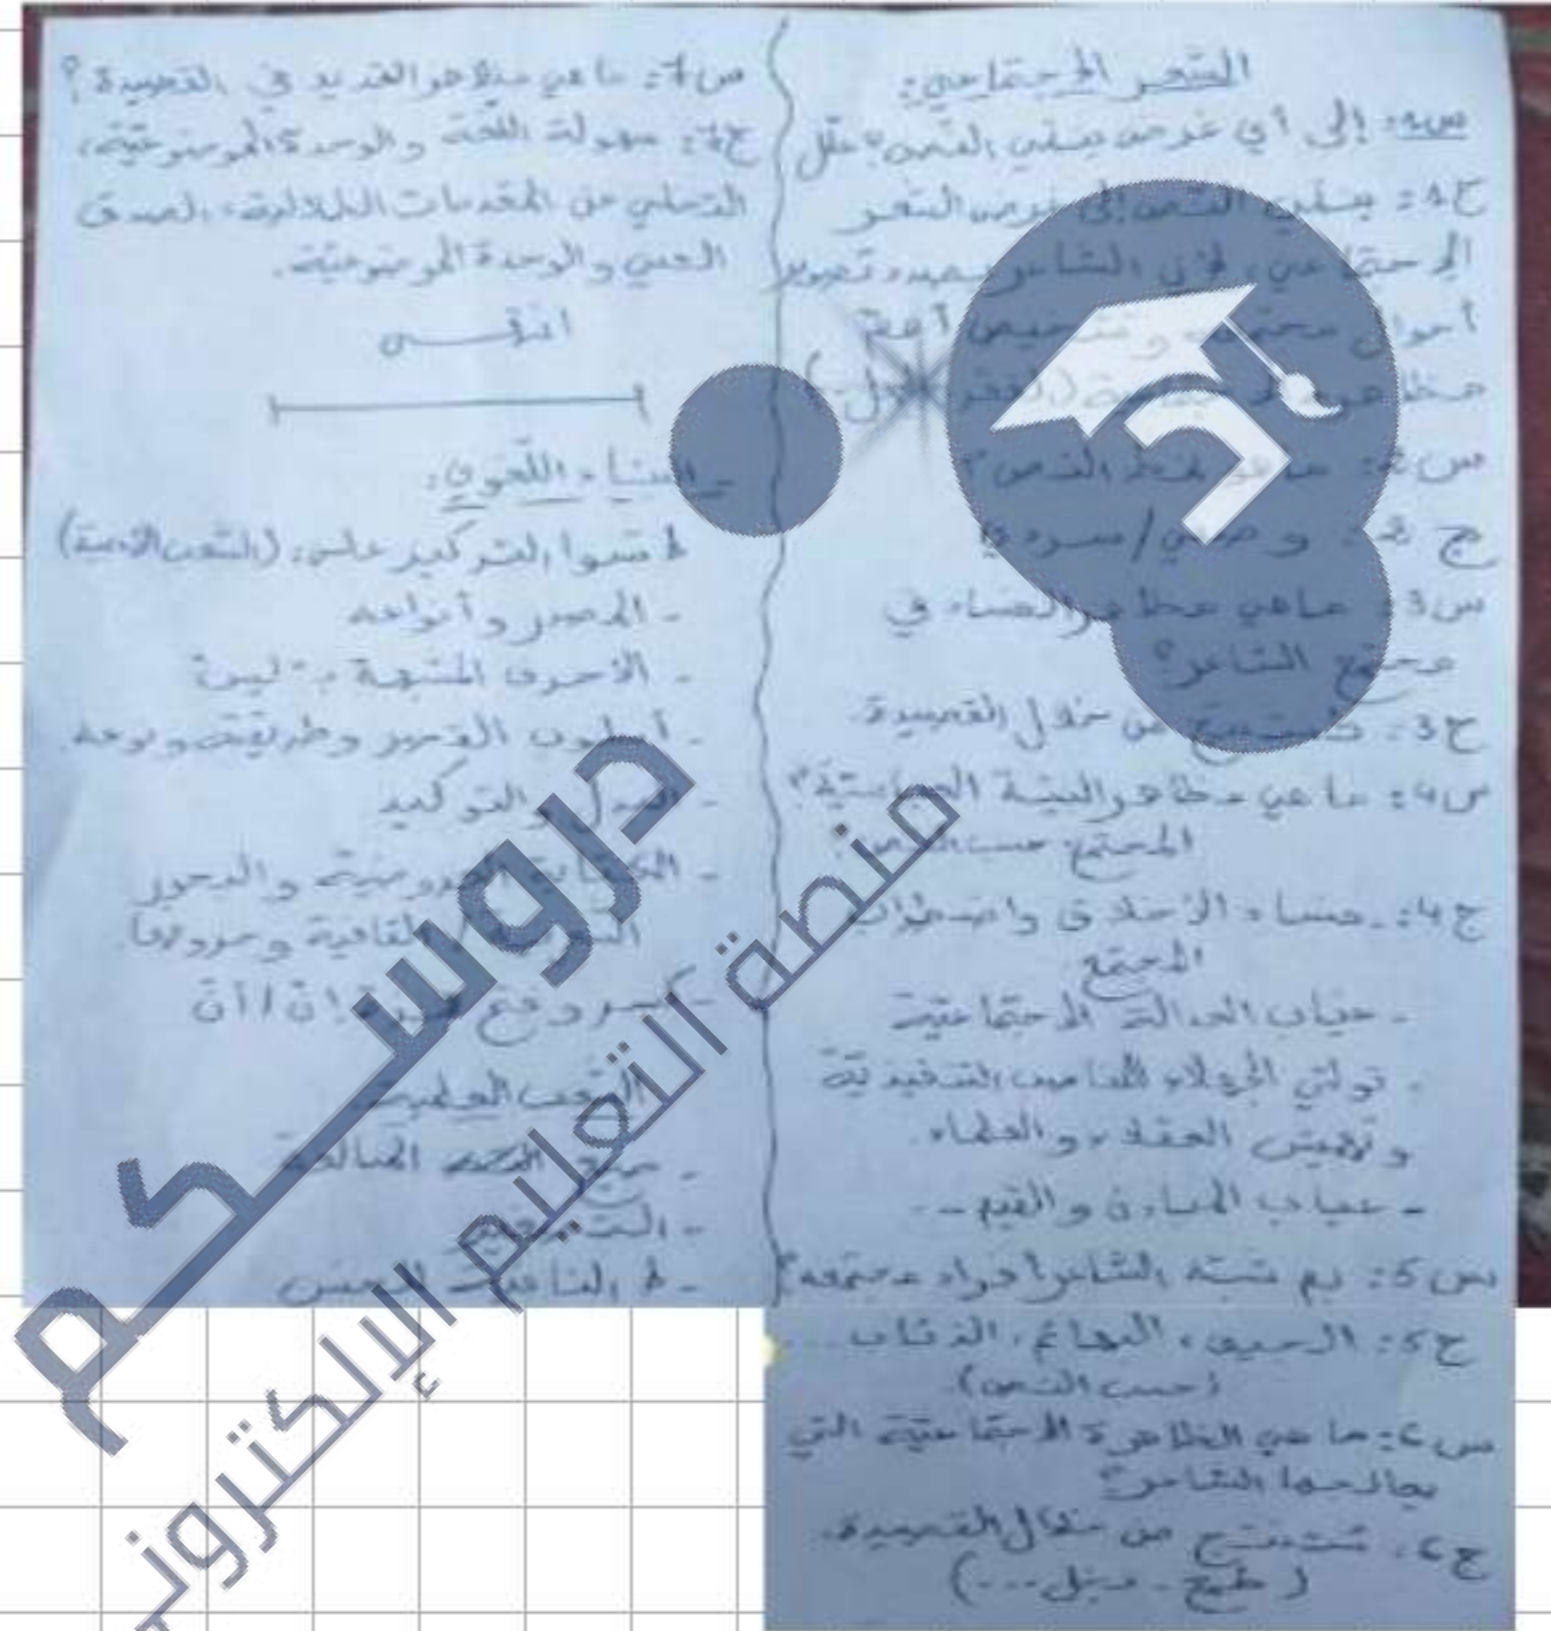 الشعر الاجتماعي:
س1: إلى أي غرض ينتمي النص؟ علل
ج1: ينتمي النص إلى غرض الشعر
الاجتماعي، لأن الشاعر بصدد تصوير
أحوال مجتمعه وتشخيص
س2: ما هو نمط النص؟
ج2: وصفي/سردي
س3: ما هي مظاهر الفساد في
مجتمع الشاعر؟
ج3: تستنتج من خلال القصيدة.
س4: ما هي مظاهر البنية
المجتمع حسب النص؟
ج4: - فساد الأخلاق واضطراب
المجتمع
- غياب العدالة الاجتماعية
- تولي الجهلاء المناصب التنفيذية
و تهميش العقلاء والعلماء.
- غياب المبادئ والقيم -
س5: بم شبه الشاعر أفراد مجتمعه؟
ج5: الحمير، البهائم، الذئاب
(حسب النص).
س6: ما هي الظاهرة الاجتماعية التي
يعالجها الشاعر؟
ج6: تستنتج من خلال القصيدة.
(طمع - بخل ...)
س7: ما هي مظاهر التجديد في القصيدة؟
ج7: سهولة اللغة والوحدة الموضوعية،
التخلي عن المقدمات الطللية، الصدق
الفني والوحدة الموضوعية.
انتهى
- البناء اللغوي:
لا تنسوا التركيز على
- المصدر وأنواعه
- الأحرف المشبهة بـ "ليس"
- أسلوب القصر وطريقته ونوعه.
- البدل والتوكيد
- الكتابة العروضية والبحور
القافية وحروفها.
- كسر وفتح همزة إن/أن
- صيغ المبالغة
- التصغير
- لا النافية للجنس
دروسكم
منصة التعليم الإلكتروني